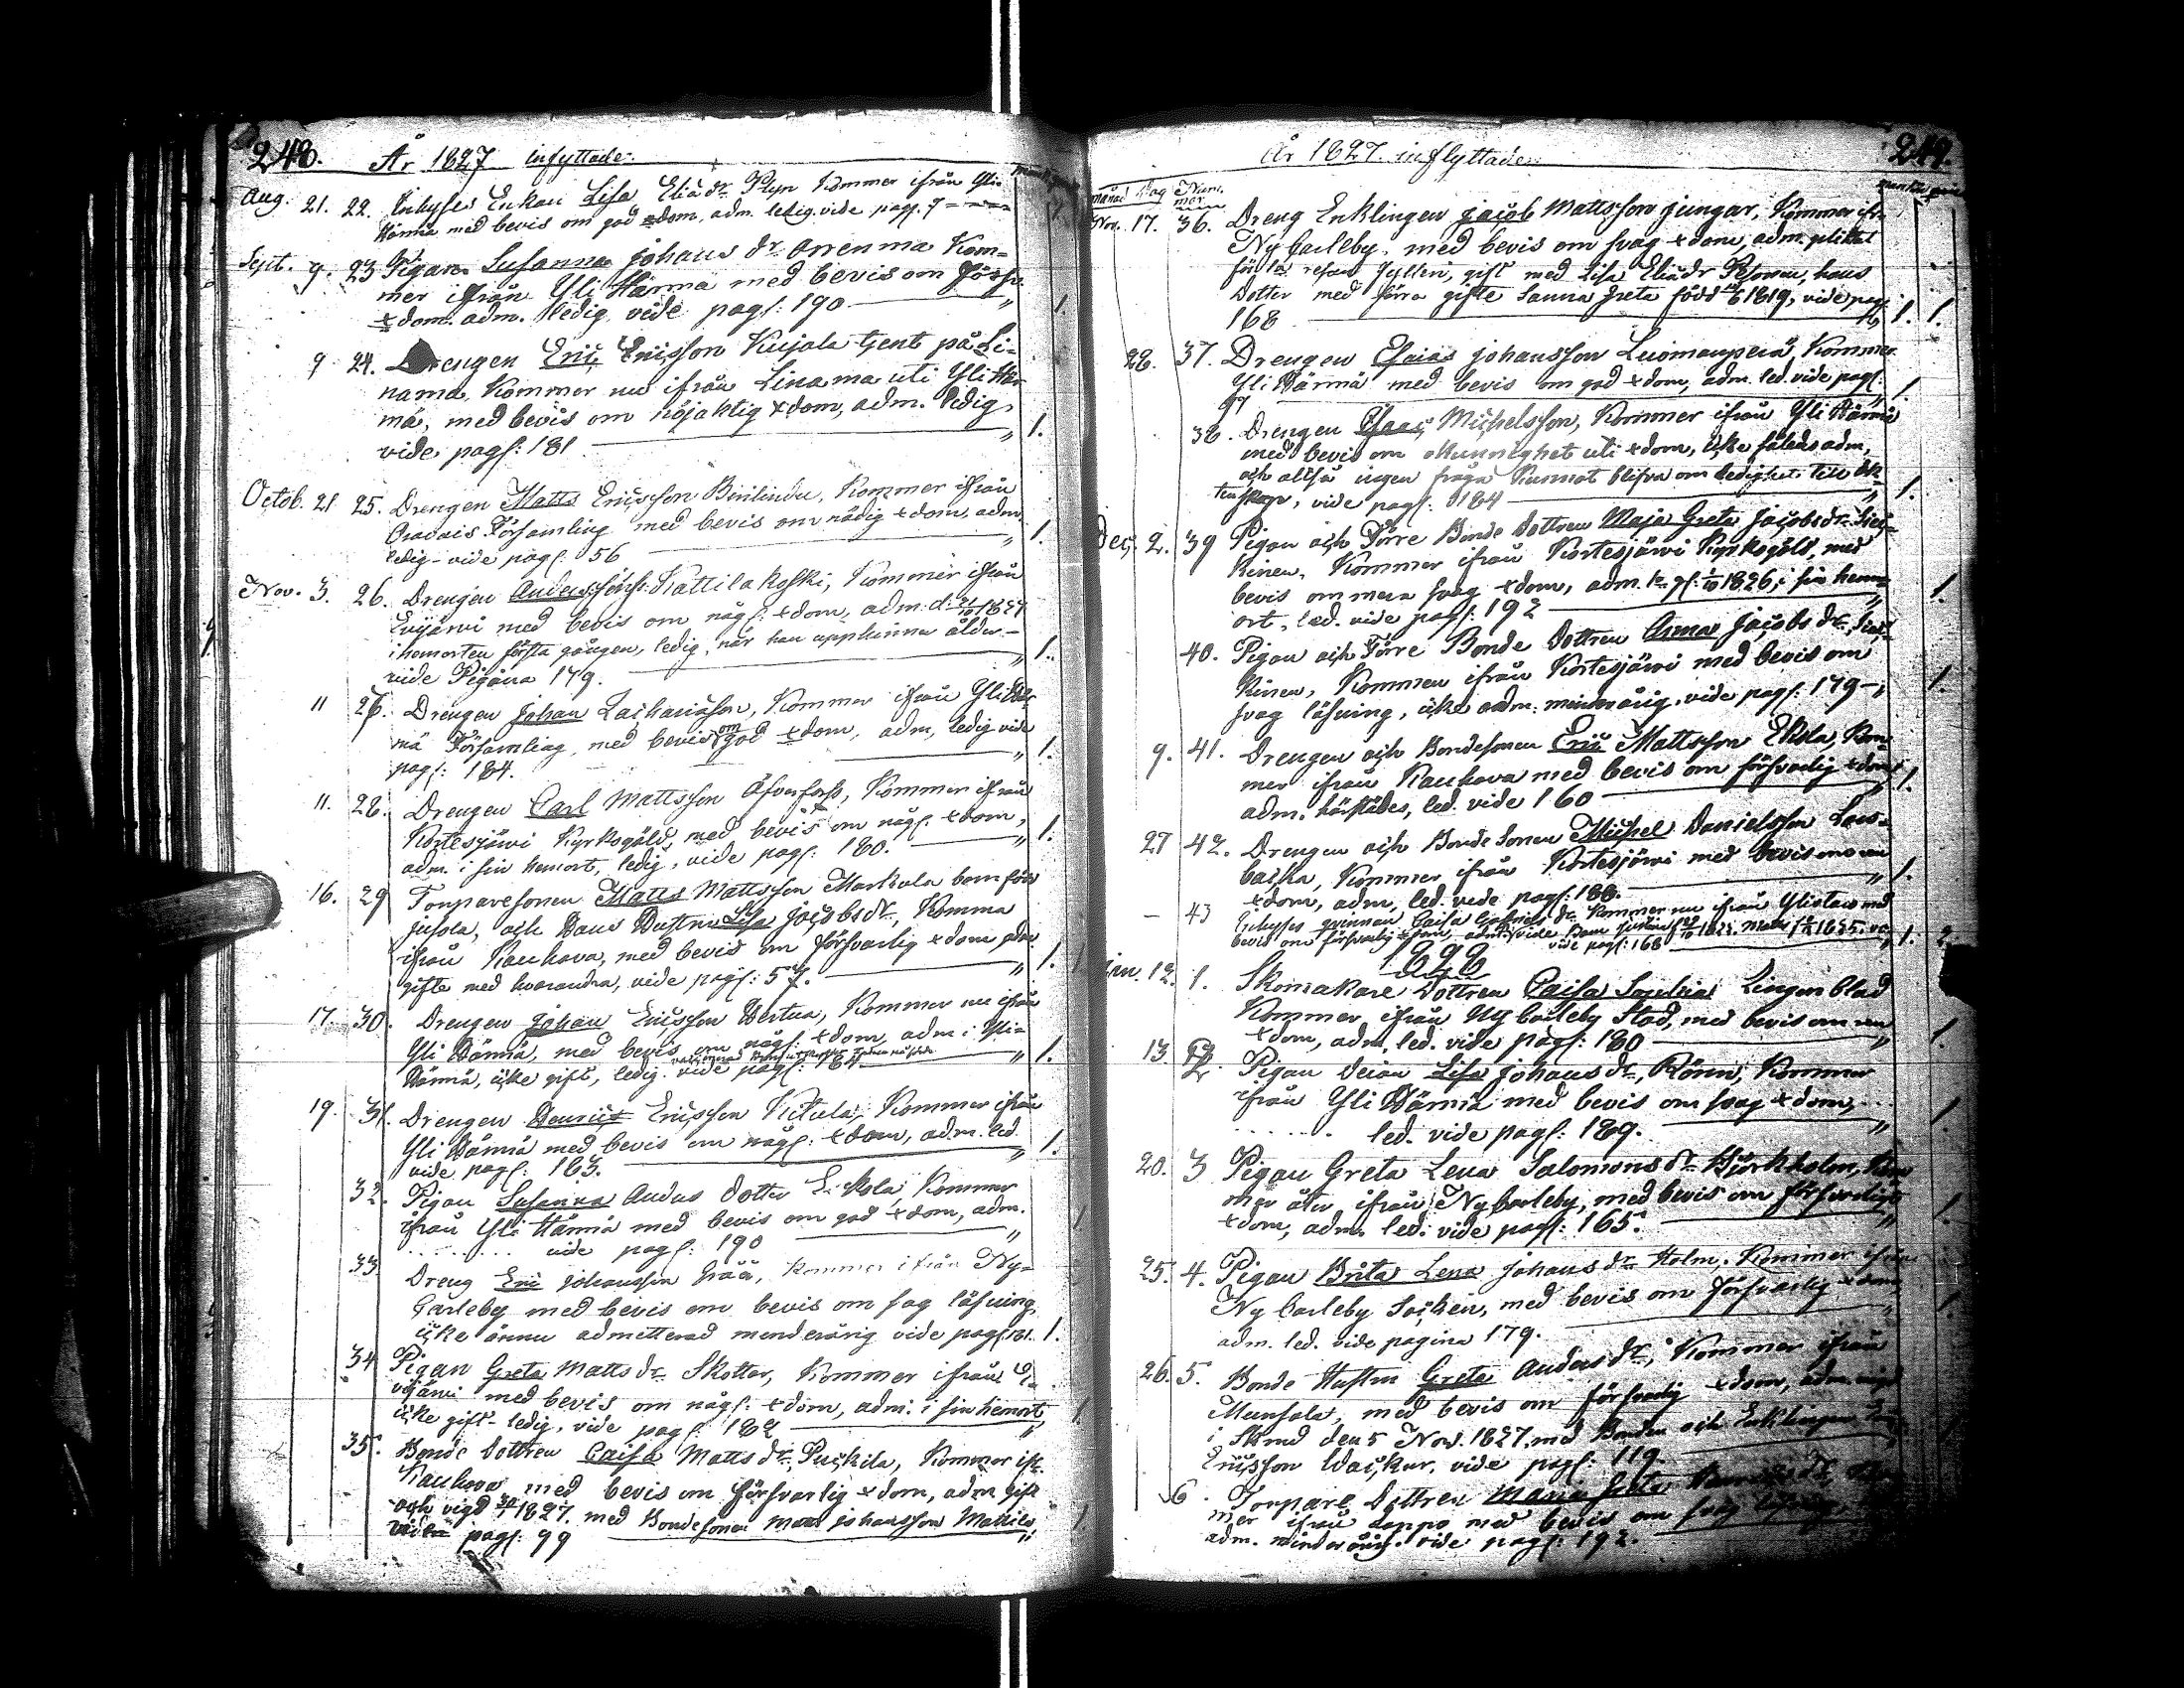 248. År 1827 inflyttade.
Aug. 21. 22. Inhyses Enkan Lisa Elia dr kommer ifrån Yli
Härmä med bevis om god xdom, adm. ledig. vide pag: 7
Sept. 9. 23 Pigan Susanna Johans dr Orrenmaa Kom=
mer ifrån Yli Härmä med bevis om försv.
xdom. adm. ledig vide pag: 190 " 1.
9 24. Drengen Eric Ericsson Kujala tjent på Li=
nama, Kommer nu ifrån Linama uti Yli Här
mä, med bevis om nöjaktig xdom, adm. ledig,
vide pag: 181 " 1.
Octob. 21 25. Drengen Matts Ericsson, Kommer ifrån
Oravais Församling med bevis om nödig xdom, adm.
ledig - vide pag: 56 " 1.
Nov. 3. 26. Drengen Anders Kattilakoski, Kommer ifrån
Evijärvi med bevis om någ: xdom, adm. d.
i hemorten första gången, ledig, när han upphinner ålder -
vide Pagina 179. " 1.
11 27. Drengen Johan Zachariasson, Kommer ifrån Yli Här
mä Församling, med bevis om god xdom, adm, ledig vide
pag: 184. " 1.
11. 28. Drengen Carl Mattsson Öfverfors, Kommer ifrån
Kortesjärvi Kyrkogäld, med bevis om någ: xdom,
adm. i sin hemort, ledig, vide pag: 180. " 1.
16. 29 Torparesonen Matts Mattsson Markula
jusola, och Hans Hustru Lisa Jacobs dr, Komma
ifrån Kauhava, med bevis om försvarlig xdom adm
gifte med hvarandra, vide pag: 57. " 1. 1
17. 30. Drengen Johan Ericsson Wertua, Kommer nu ifrån
Yli Härmä, med bevis om någ: xdom, adm i Yli=
Härmä, icke gift, ledig. vide pag: 164 " 1.
19. 31. Drengen Henric Ericsson Kitula, Kommer ifrån
Yli Härmä med bevis om någ: xdom, adm. led
vide pag: 163. " 1.
32. Pigan Susanna Anders dotter Eckola, Kommer
ifrån Yli Härmä med bevis om god xdom, adm.
vide pag: 190 " 1
33. Dreng Eric Johansson Grää, Kommer ifrån Ny=
Carleby med bevis om bevis om svag läsning,
icke ännu admitterad minderårig vide pag: 181. 1.
34 Pigan Greta Matts dr Skotter, Kommer ifrån E=
vijärvi med bevis om någ: xdom, adm. i sin hemort,
icke gift - ledig, vide pag: 182 " 1.
35. Bonde Dottren Caisa Matts dr Puckila, Kommer ifr.
Kauhava med bevis om försvarlig xdom, adm gift
och vigd 1827. med Bondesonen Matts Johansson
vide pag: 99 " 1.
249.
År 1827. inflyttade.
månad Dag Num=
mer.
Nov. 17. 36. Dreng Enklingen Jacob Mattsson Jungar, Kommer ifr.
Ny Carleby, med bevis om svag xdom, adm.
gift med Lisa Elia dr Pesonen, hans
Dotter med förra gifte Sanna Greta född 1819, vide pag:
168 1. 1.
28. 37. Drengen Esaias Johansson Luomanperä, Kommer
Yli Härmä med bevis om god xdom, adm. led. vide pag:
97 " 1
38. Drengen Isaac Michelsson, Kommer ifrån Yli Härmä
med bevis om okunnighet uti xdom, icke således adm,
och altså ingen fråga kunnat blifva om ledighet till äk-
tenskap, vide pag: 184 " 1.
Dec. 2. 39 Pigan och Förre Bonde dottren Maja Greta Jacobs dr
kinen, Kommer ifrån Kortesjärvi Kyrkogäld, med
bevis om mera svag xdom, adm. 1826, i sin hem=
ort, led. vide pag: 192 " 1.
40. Pigan och Förre Bonde Dottren Anna Jacobs dr
kinen, Kommer ifrån Kortesjärvi med bevis om
svag läsning, icke adm. minderårig, vide pag: 179 " 1.
9. 41. Drengen och Bondesonen Eric Mattsson Ekola, Kom=
mer ifrån Kauhava med bevis om försvarlig xdom
adm. härstädes, led. vide 160 " 1.
27 42. Drengen och Bonde Sonen Michel Danielsson
backa, Kommer ifrån Kortesjärvi med bevis om
xdom, adm, led. vide pag: 188. " 1.
- 43 Inhyses qvinnan Caisa dr Kommer nu ifrån Ylistaro med
bevis om försvarlig xdom
vide pag: 168 " 1. 2.
1828
Jan. 12. 1. Skomakare Dottren Caisa Sophia Lingonblad
Kommer ifrån Ny Carleby Stad, med bevis om
xdom, adm, led. vide pag: 180 " 1.
13. 2. Pigan Lisa Johans dr, Rönn, Kommer
ifrån Yli Härmä med bevis om svag xdom, ...
led. vide pag: 189. " 1
20. 3 Pigan Greta Lena Salomons dr Björkholm, Kom
mer åter ifrån Ny Carleby, med bevis om försvarlig
xdom, adm. led. vide pag: 165. " 1.
25. 4. Pigan Brita Lena Johans dr Holm, Kommer ifrån
Ny Carleby Socken, med bevis om försvarlig xdom
adm. led. vide pagina 179. " 1.
26. 5. Bonde Hustrun Greta Anders dr, Kommer ifrån
Munsala, med bevis om försvarlig xdom, adm. vigd
i Sknd den 5 Nov. 1827. med Bonden och Enklingen
Ericsson Wackar, vide pag: 119
6. Torpare Dottren Maria Greta
mer ifrån Lappo med bevis om svag
adm. minderårig. vide pag: 192.